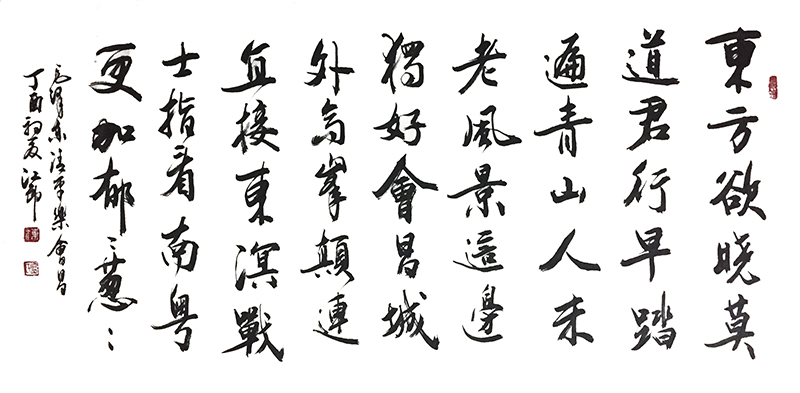 東方欲晓莫
道君行早踏
遍青山人未
老風景這邊
獨好會昌城
外高峯顛連
直接東溟戰
士指看南粤
更加郁〻葱〻
毛澤東清平樂會昌
丁酉初夏